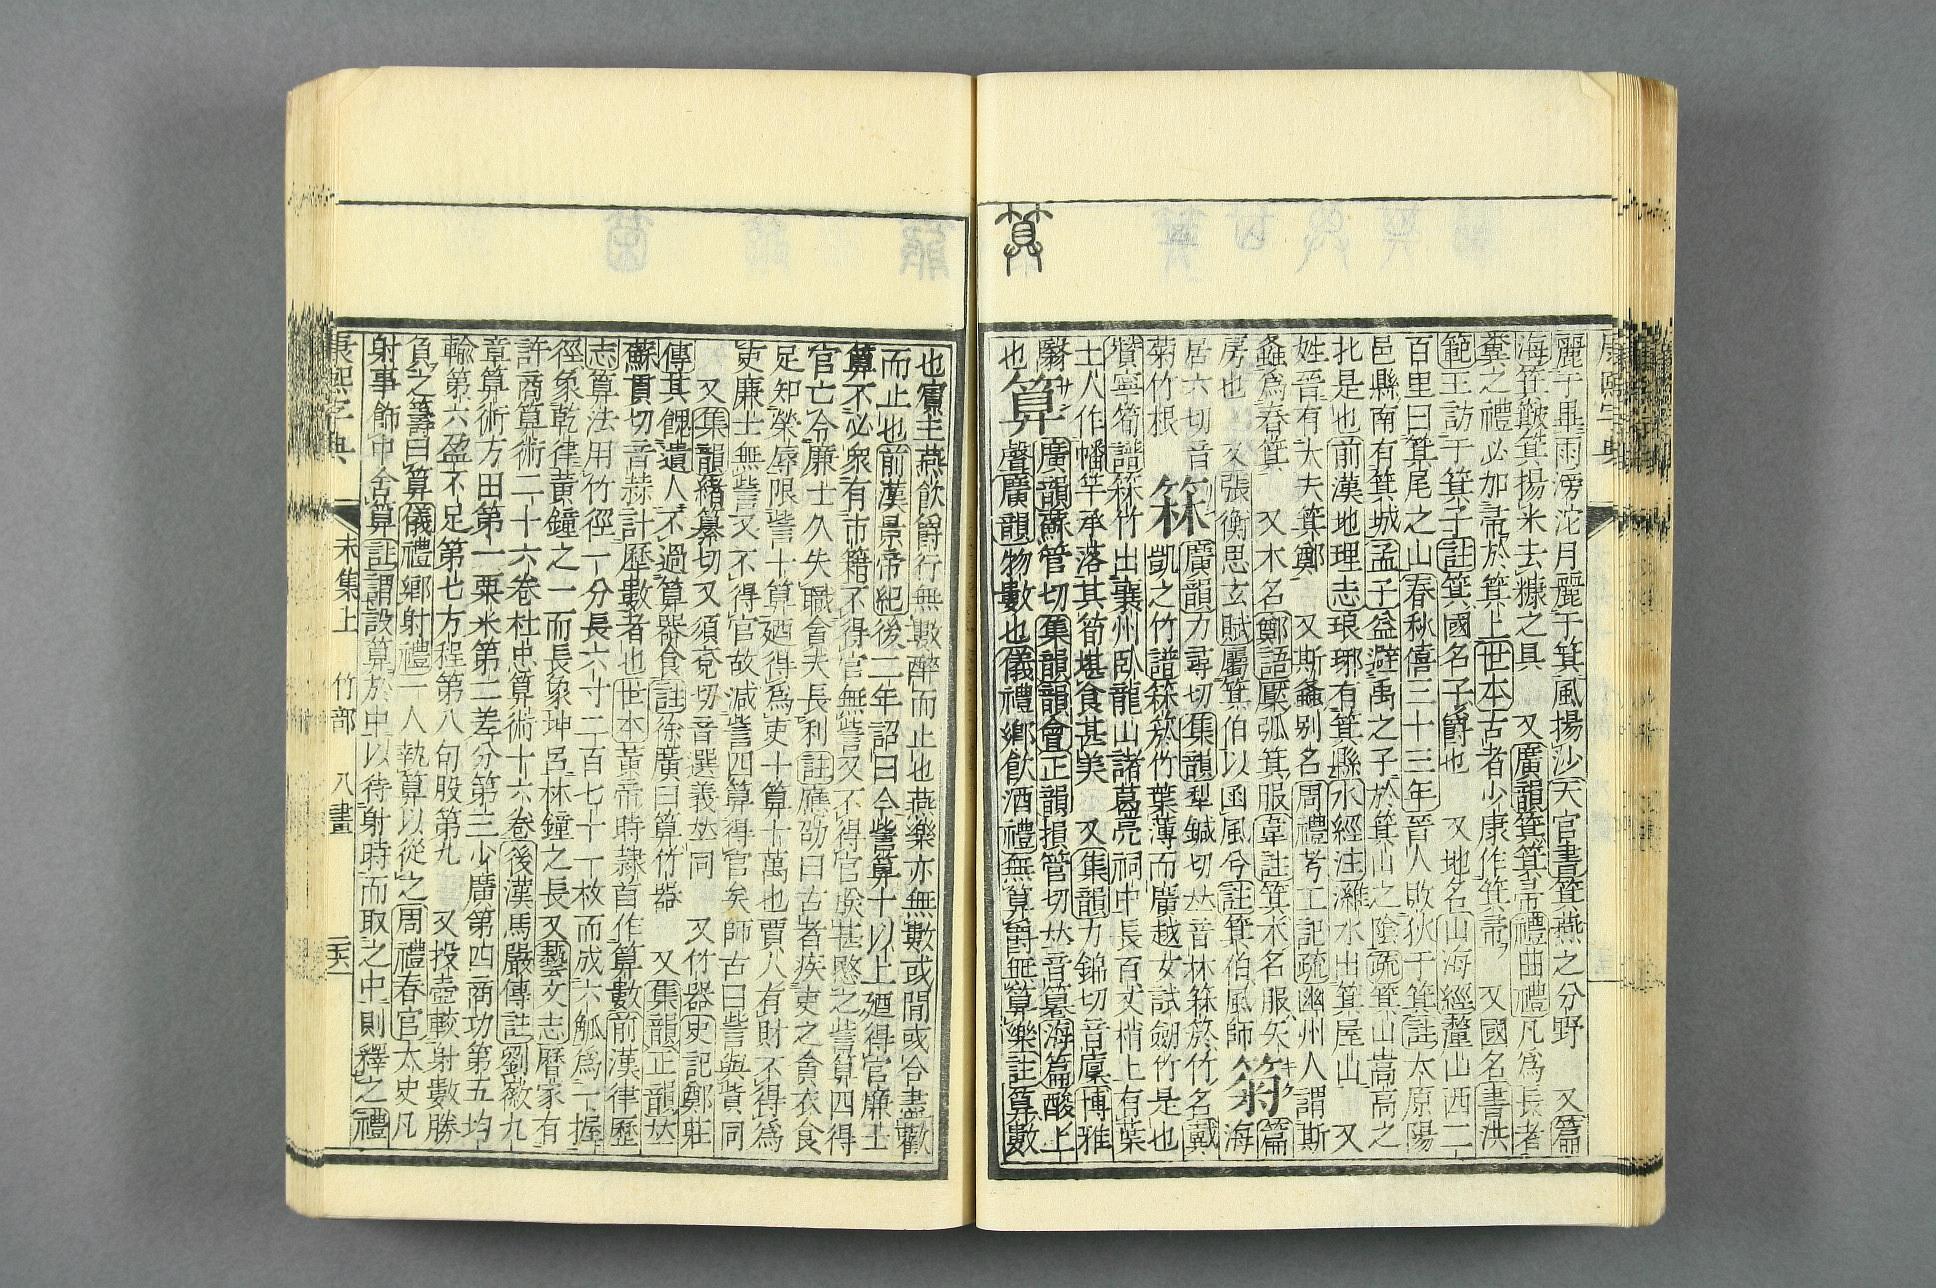 康熙字典
麗于畢雨滂沱月麗于箕風揚沙天官書箕燕之分野　又篇
海箕簸箕揚米去糠之具　又廣韻箕箕帚禮曲禮凡爲長者
糞之禮必加帚於箕上世本古者少康作箕帚　又國名書洪
範王訪于箕子註箕國名子爵也　又地名山海經釐山西二
百里曰箕尾之山春秋僖三十三年晉人敗狄于箕註太原陽
邑縣南有箕城孟子益避禹之子於箕山之陰疏箕山嵩高之
北是也前漢地理志琅琊有箕縣水經注濰水出箕屋山　又
姓晉有大夫箕鄭　又斯螽别名周禮考工記疏幽州人謂斯
螽爲舂箕　又木名鄭語檿弧箕服韋註箕木名服矢
房也　又張衡思玄賦屬箕伯以函風兮註箕伯風師
キク
篇
海
居六切音
菊竹根
箖
廣韻力尋切集韻犂鍼切𠀤音林箖箊竹名戴
凱之竹譜箖箊竹葉薄而廣越女試劒竹是也
贊寧筍譜箖竹出襄州臥龍山諸葛亮祠中長百丈梢上有葉
士人作幡竿承落其筍堪食甚美　又集韻力錦切音廩博雅
翳
也
サン
算
廣韻蘇管切集韻韻會正韻損管切𠀤音篹海篇酸上
聲廣韻物數也儀禮鄉飮酒禮無算爵無算樂註算數
算
也賓主燕飮爵行無數醉而止也燕樂亦無數或閒或合盡歡
而止也前漢景帝紀後二年詔曰今訾算十以上廼得官廉士
算不必衆有市籍不得官無訾又不得官朕甚愍之訾算四得
官亡令廉士久失職貪夫長利註應劭曰古者疾吏之貪衣食
足知榮辱限訾十算廼得爲吏十算十萬也賈人有財不得爲
吏廉士無訾又不得官故減訾四算得官矣師古曰訾與貲同
　又集韻緒纂切又須兗切音選義𠀤同　又竹器史記鄭莊
傳其餽遺人不過算器食註徐廣曰算竹器　又集韻正韻𠀤
蘇貫切音蒜計歷數者也世本黃帝時隸首作算數前漢律歷
志算法用竹徑一分長六寸二百七十一枚而成六觚爲一握
徑象乾律黃鐘之一而長象坤呂林鐘之長又藝文志曆家有
許商算術二十六卷杜忠算術十六卷後漢馬嚴傳註劉徽九
章算術方田第一粟米第二差分第三少廣第四商功第五均
輸第六盈不足第七方程第八句股第九　又投壺較射數勝
負之籌曰算儀禮鄉射禮一人執算以從之周禮春官太史凡
射事飾中舍算註謂設算於中以待射時而取之中則釋之禮
康熙字典
未集上
竹部
八畫
二六